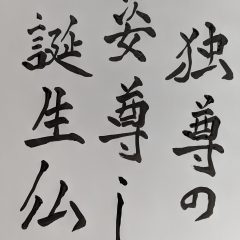 独尊の
姿尊し
誕生仏